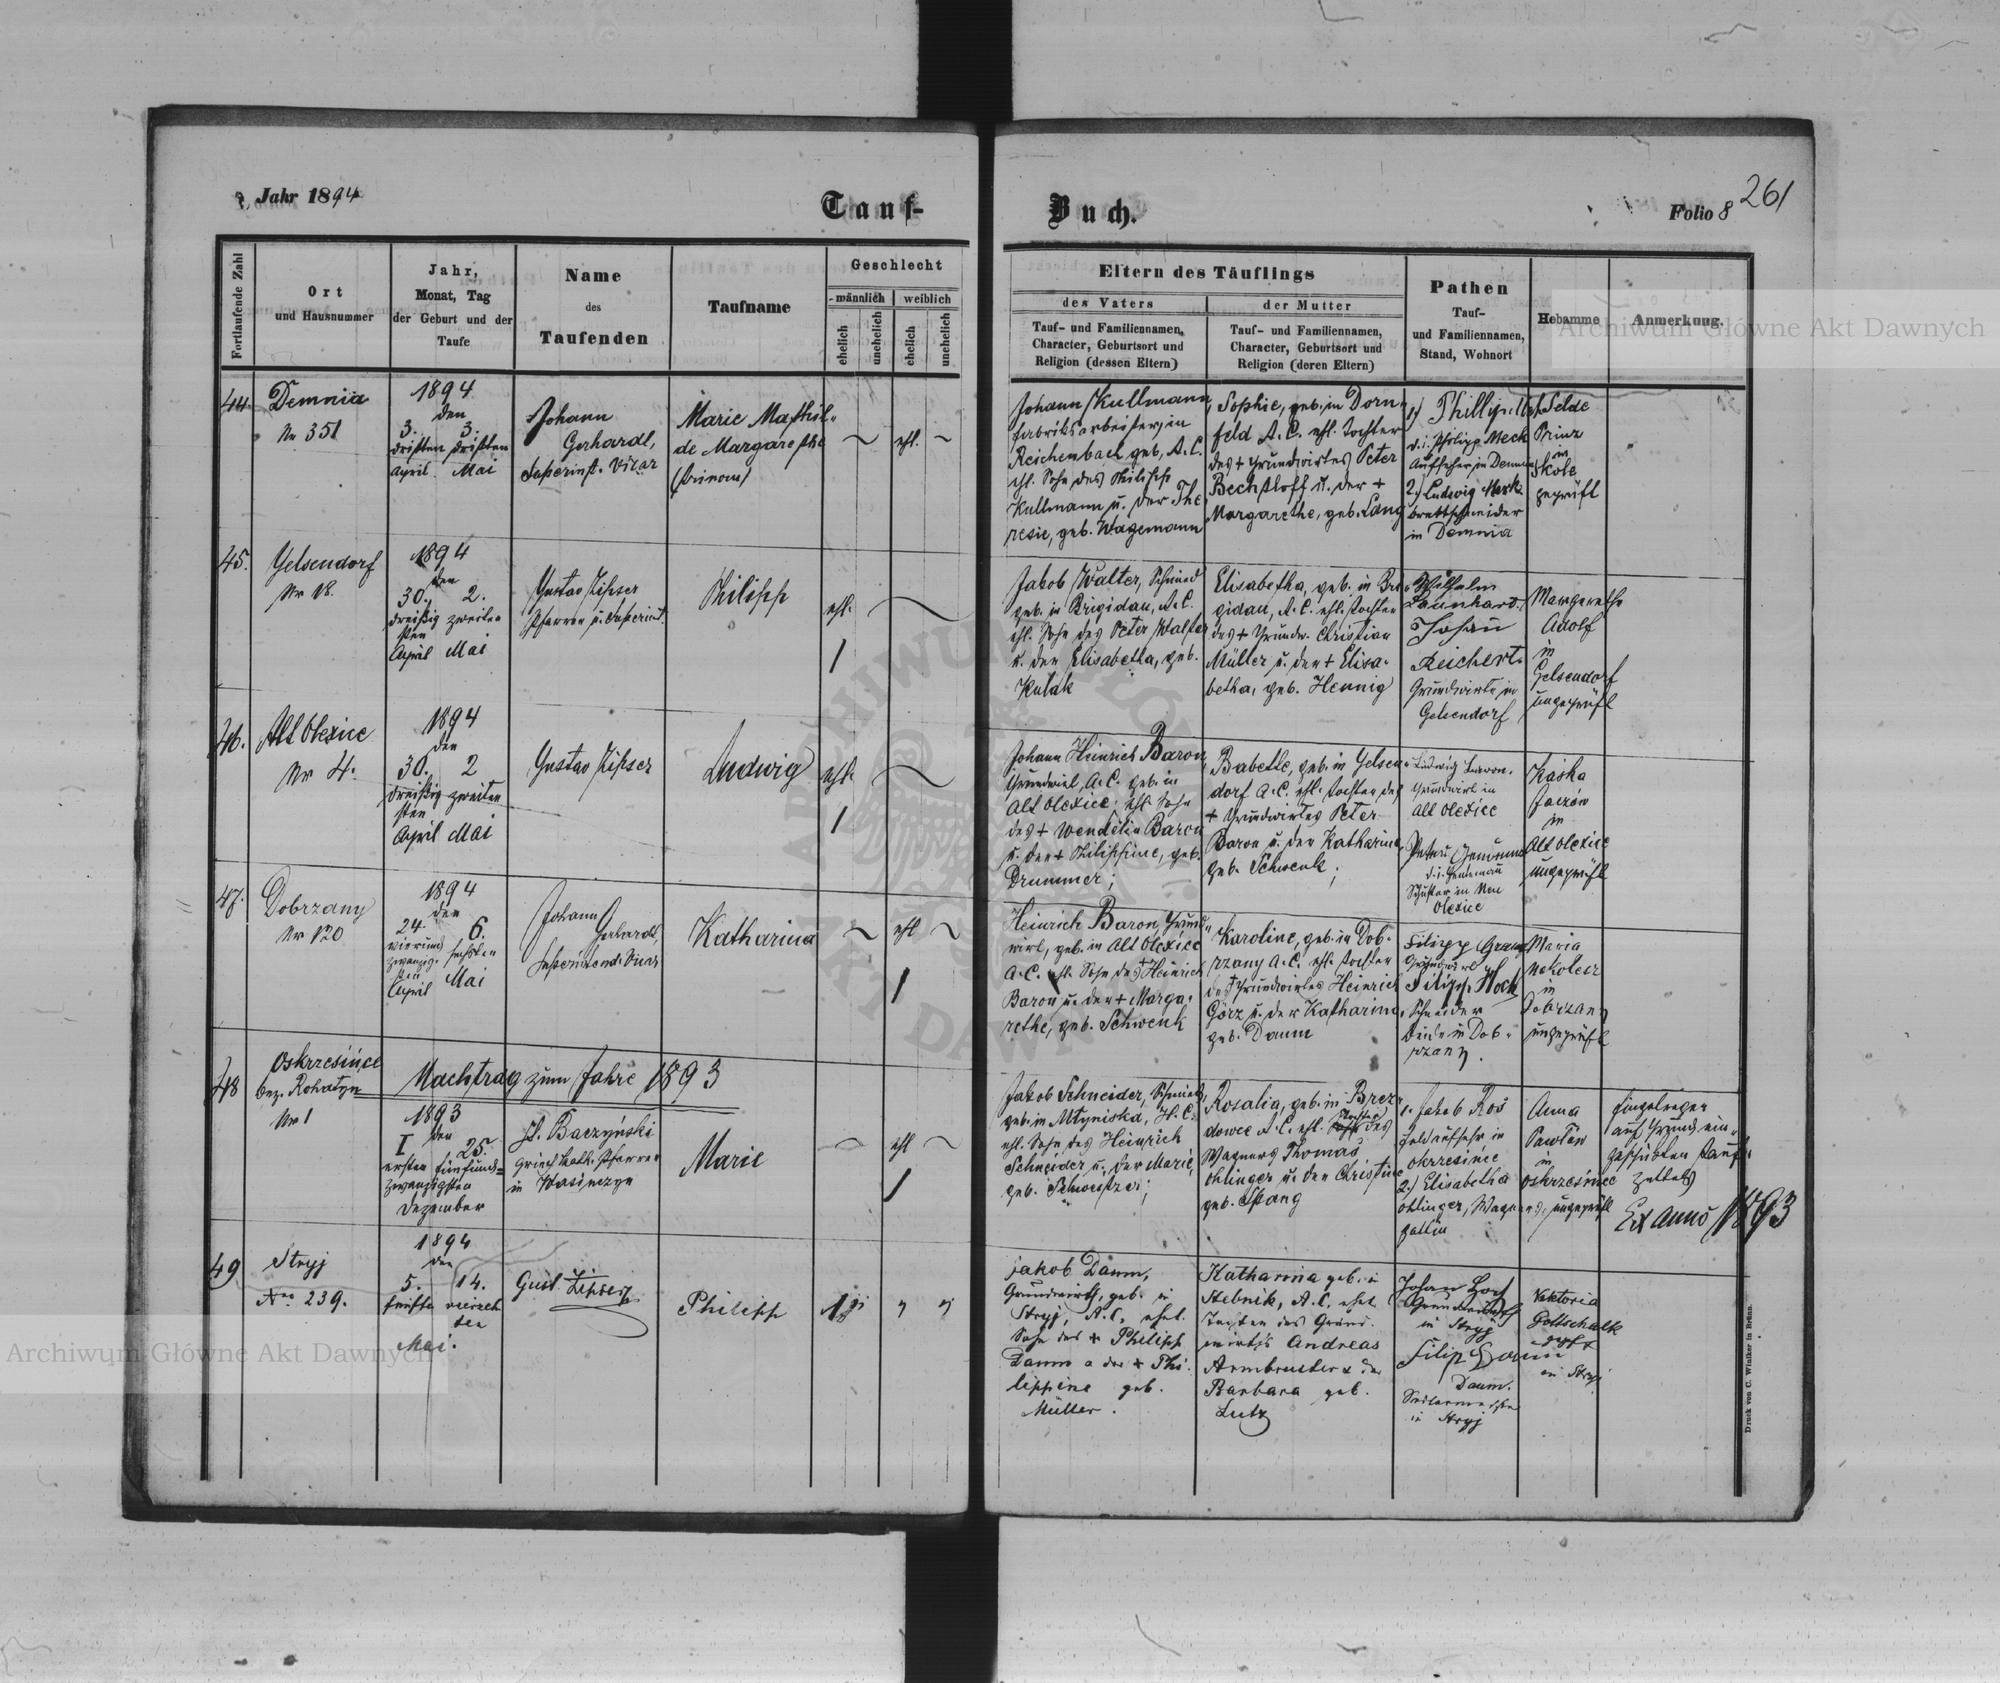 Jahr 1894
Tauf-
Buch.
Folio 8
261
Fortlaufende Zahl
Ort
und Hausnummer
Jahr,
Monat, Tag
der Geburt und der
Taufe
Name
des
Taufenden
Taufname
Geschlecht
männlich
weiblich
ehelich
unehelich
ehelich
unehelich
Eltern des Täuflings
des Vaters
Tauf- und Familiennamen,
Character, Geburtsort und
Religion (dessen Eltern)
der Mutter
Tauf- und Familiennamen,
Character, Geburtsort und
Religion (deren Eltern)
Pathen
Tauf-
und Familiennamen,
Stand, Wohnort
Hebamme
Anmerkung.
44.
Demnia
Nr 351
1894
den
3. 3.
dritten dritten
April Mai
Johann
Gerhardt,
Superint. Vicar
Marie Mathil-
de Margarethe
ehl.
Johann Kullmann,
Fabriksarbeiter, in
Reichenbach geb, A.C.
ehl. Sohn des Philipp
Kullmann u. der The
resie, geb. Wagemann
Sophie, geb. in Dorn
feld A.C. ehl. Tochter
des + Grundwirtes Peter
Bechtloff u. der +
Margarethe, geb. Lang
1) Phillip
d.i. Philipp Meck
Aufseher in Demnia
2.) Ludwig Merk
Brettschneider
in Demnia
Prinz
in
Skole
geprüft
45.
Gelsendorf
Nr 18.
1894
den
30. 2.
dreißig zweiten
sten
April Mai
Gustav Zipser
Pfarrer u. Superint.
Philipp
ehl.
1
Jakob Walter, Schmied
geb. in Brigidau, A.C.
ehl. Sohn des Peter Walter
u. der Elisabetha, geb.
Kulak
Elisabetha, geb. in Bri
gidau, A.C. ehl. Tochter
des + Grundw. Christian
Müller u. der + Elisa-
betha, geb. Hennig
Wilhelm
Launhardt
Johan
Reichert
Grundwirte in
Gelsendorf
Margarethe
Adolf
in
Gelsendorf
ungeprüft
46.
Alt Olexice
Nr 4.
1894
den
30. 2
dreißig zweiten
sten
April Mai
Gustav Zipser
Ludwig
ehl.
1
Johann Heinrich Baron
Grundwirt A.C. geb. in
Alt Olexice; ehl. Sohn
des + Wendelin Baron
u. der + Philippine, geb.
Drummer;
Babette, geb. in Gelsen-
dorf A.C. ehl. Tochter des
+ Grundwirtes Peter
Baron u. der Katharina,
geb. Schwenk;
Ludwig Baron.
Grundwirt in
Alt Olexice
Schuster in Neu
Olexice
Kaska
in
Alt Olexice
ungeprüft
47.
Dobrzany
Nr 120
1894
den
24. 6.
vierund sechsten
zwanzig-
sten
April Mai
Johann
Gerhardt,
Superintend. Vicar
Katharina
ehl
1
Heinrich Baron, Grund-
wirt, geb. in Alt Olexice
A.C. ehl. Sohn des + Heinrich
Baron u. der + Marga-
rethe, geb. Schwenk
Karoline, geb. in Dob-
rzany A.C. ehl. Tochter
des Grundwirtes Heinrich
Görz u. der Katharina,
geb. Daum
Filipp
Grundwirt
Filipp Hoch
Schneider
beide in Dob-
rzany.
Maria
in
Dobrzany
ungeprüft
48
Oskrzesińce
bez. Rohatyn
Nr 1
Nachtrag zum Jahre 1893
1893
den
I 25.
ersten fünfund-
zwanzigsten
Dezember
Baczyński
Griech kath. Pfarrer
in
Marie
ehl
1
Jakob Schneider, Schmied
geb. in Mlyniska, H.C.
ehl. Sohn des Heinrich
Schneider u. der Marie,
geb. Schweitzer;
Rosalia, geb. in Brez-
dowec A.C. ehl. Tochter des
Wagners Thomas
Ohlinger u. der Christine
geb. Spang
1. Jakob Roś
Feldaufseher in
2.) Elisabetha
Ohlinger, Wagners-
gattin
Anna
Pawlów
in
Oskrzesińce
ungeprüft
Eingetragen
auf Grund ein-
geschickten Tauf-
zettels
Ex anno 1893
49
Stryj
Nro 239.
1894
den
5. 14.
fünften vierzehn
ten
Mai.
Gust. Zipser
Philipp
1
Jakob Daum,
Grundwirth, geb. in
Stryj, A.C. ehel.
Sohn des + Philipp
Daum u der + Phi
lippine geb.
Müller.
Katharina geb. in
Stebnik, A.C. ehel.
Tochter des Grund-
wirths Andreas
Armbruster u der
Barbara geb.
Lutz
Johan
Grundwirth
in Stryj
Filip Daum
Daum.
in Stryj
Viktoria
Gottschalk
in Stryj
Druck von C. Winiker in Brünn.
Archiwum Główne Akt Dawnych
Archiwum Główne Akt Dawnych